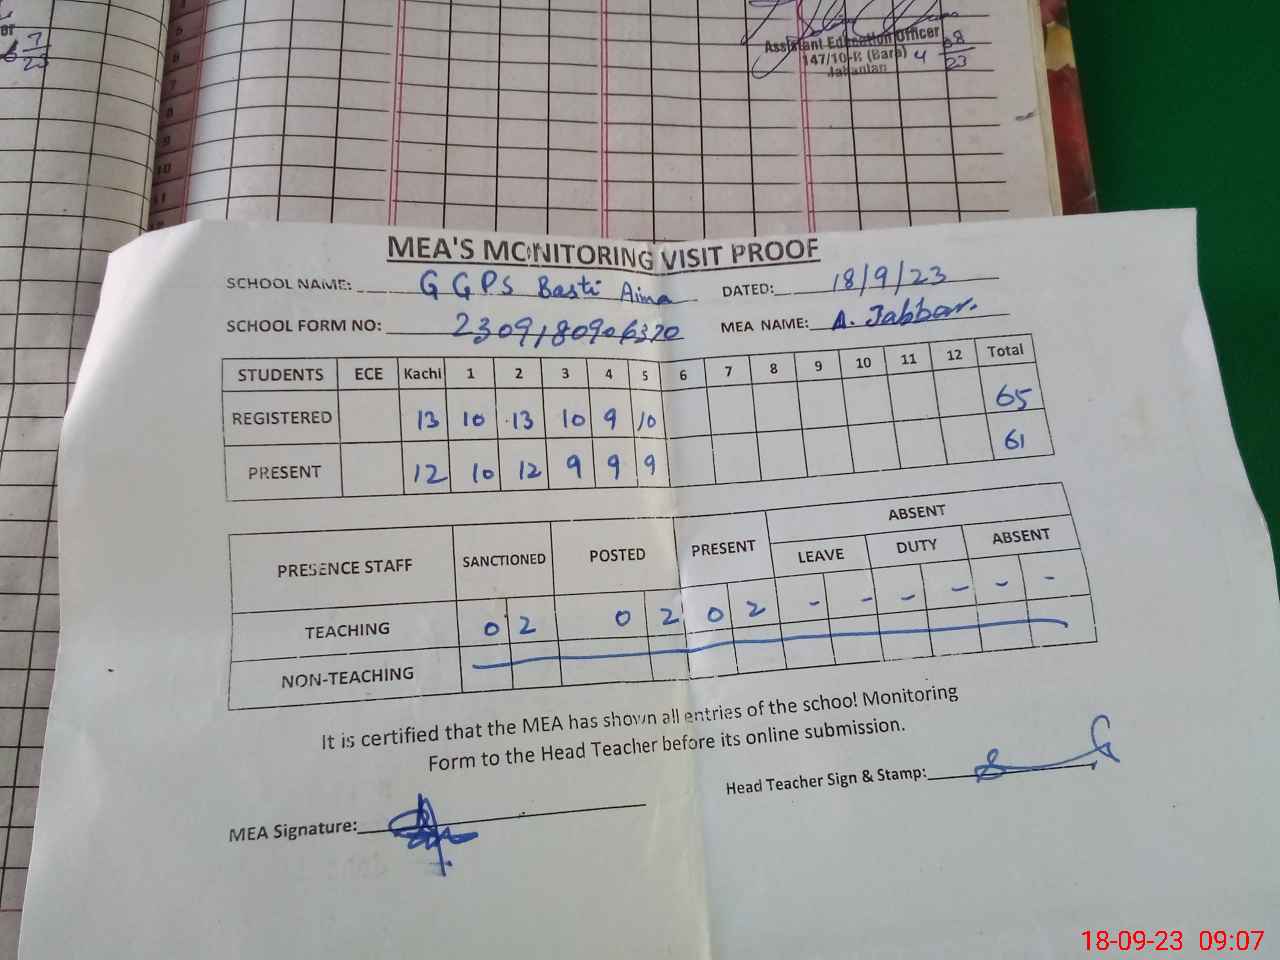 7
23
5
6
7
8
9
10
11
Assistant Education Officer
147/10-R (Bara)
Jahanian
4 08
23
MEA'S MONITORING VISIT PROOF
SCHOOL NAME: G GPS Basti Aima DATED: 18/9/23
SCHOOL FORM NO: MEA NAME: A. Jabbar.
STUDENTS ECE Kachi 1 2 3 4 5 6 7 8 9 10 11 12 Total
REGISTERED 13 10 13 10 9 10 65
PRESENT 12 10 12 9 9 9 61
PRESENCE STAFF SANCTIONED POSTED PRESENT ABSENT
LEAVE DUTY ABSENT
TEACHING 0 2 0 2 0 2 - - - - - -
NON-TEACHING
It is certified that the MEA has shown all entries of the school Monitoring
Form to the Head Teacher before its online submission.
Head Teacher Sign & Stamp:
MEA Signature:
18-09-23 09:07